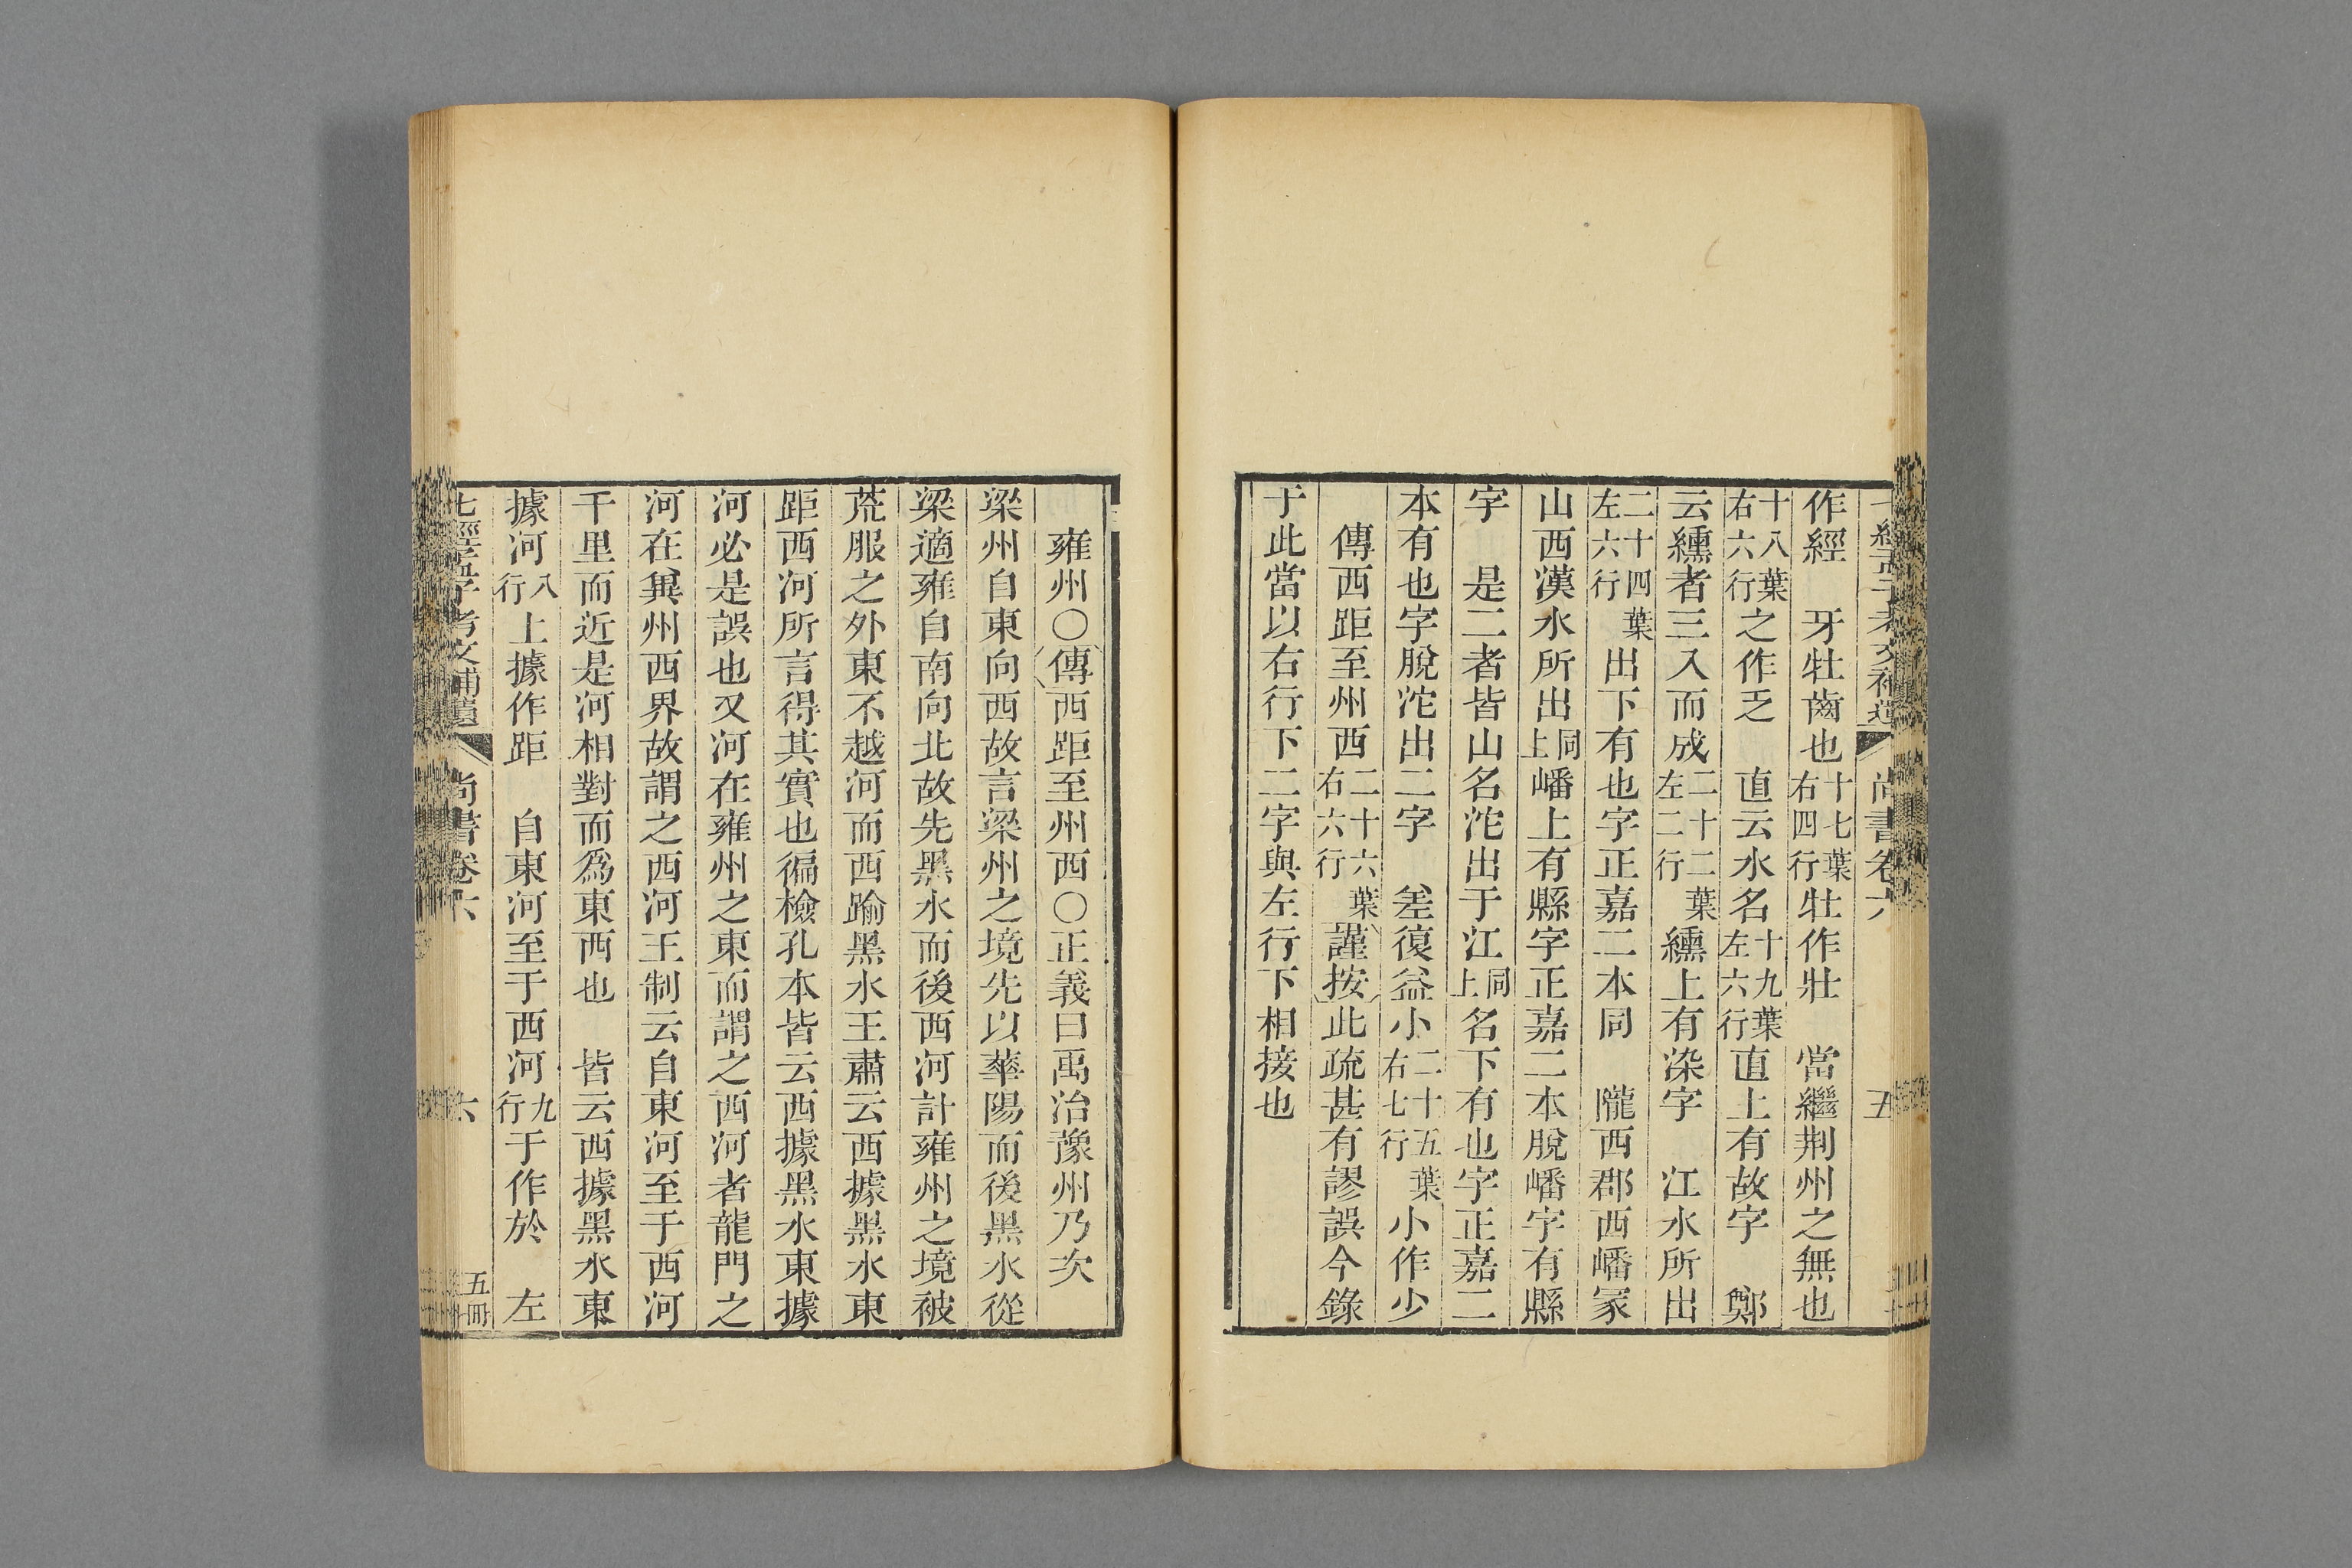 七經孟子考文補遺 尚書卷六 五
作經　牙牡齒也十七葉右四行牡作壯　當繼荆州之無也
十八葉右六行之作乏　直云水名十九葉左六行直上有故字　鄭
云纁者三入而成二十二葉左二行纁上有染字　江水所出
二十四葉左六行出下有也字正嘉二本同　隴西郡西嶓冢
山西漢水所出同上嶓上有縣字正嘉二本脫嶓字有縣
字　是二者皆山名沱出于江同上名下有也字正嘉二
本有也字脫沱出二字　差復益小二十五葉右七行小作少
傳西距至州西二十六葉右六行謹按此疏甚有謬誤今錄
于此當以右行下二字與左行下相接也
雍州○傳西距至州西○正義曰禹治豫州乃次
梁州自東向西故言梁州之境先以華陽而後黑水從
梁適雍自南向北故先黑水而後西河計雍州之境被
荒服之外東不越河而西踰黑水王肅云西據黑水東
距西河所言得其實也徧檢孔本皆云西據黑水東據
河必是誤也又河在雍州之東而謂之西河者龍門之
河在兾州西界故謂之西河王制云自東河至于西河
千里而近是河相對而爲東西也　皆云西據黑水東
據河八行上據作距　自東河至于西河九行于作於　左
七經孟子考文補遺 尚書卷六 六 五冊